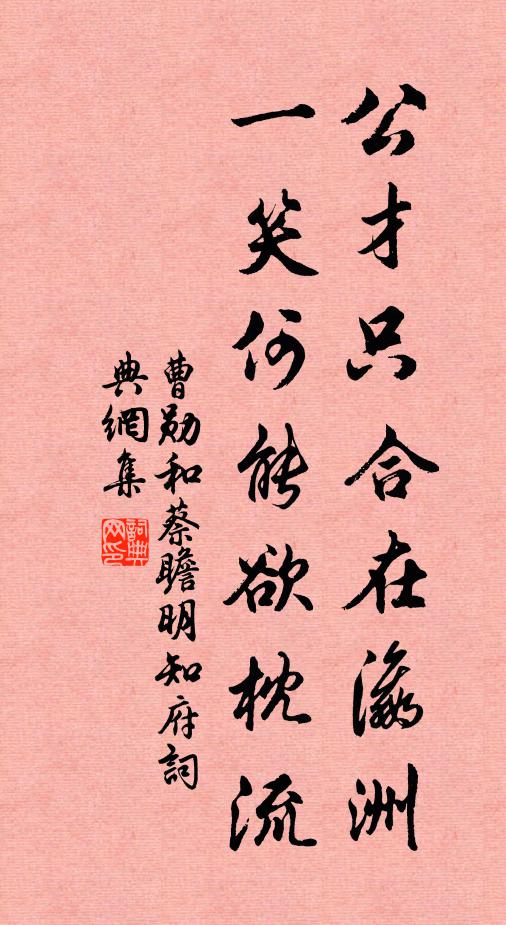 公才只合在瀛洲
一笑何能欲枕流
曹勛和蔡瞻明知府詞
典網集
詞典
网印